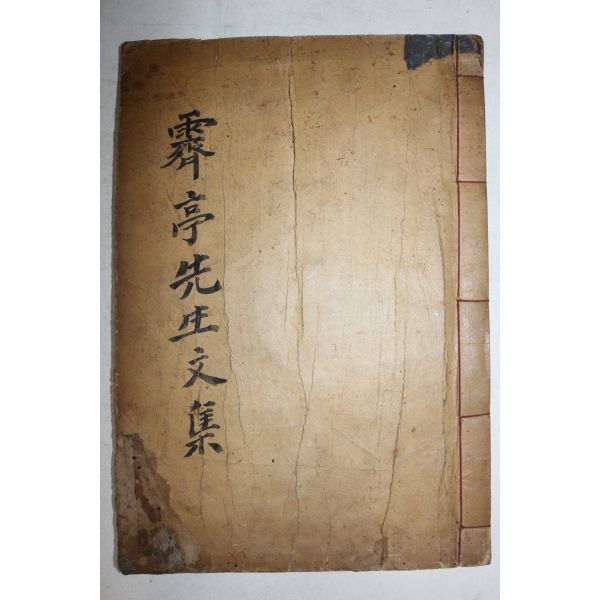 霽亭先生文集